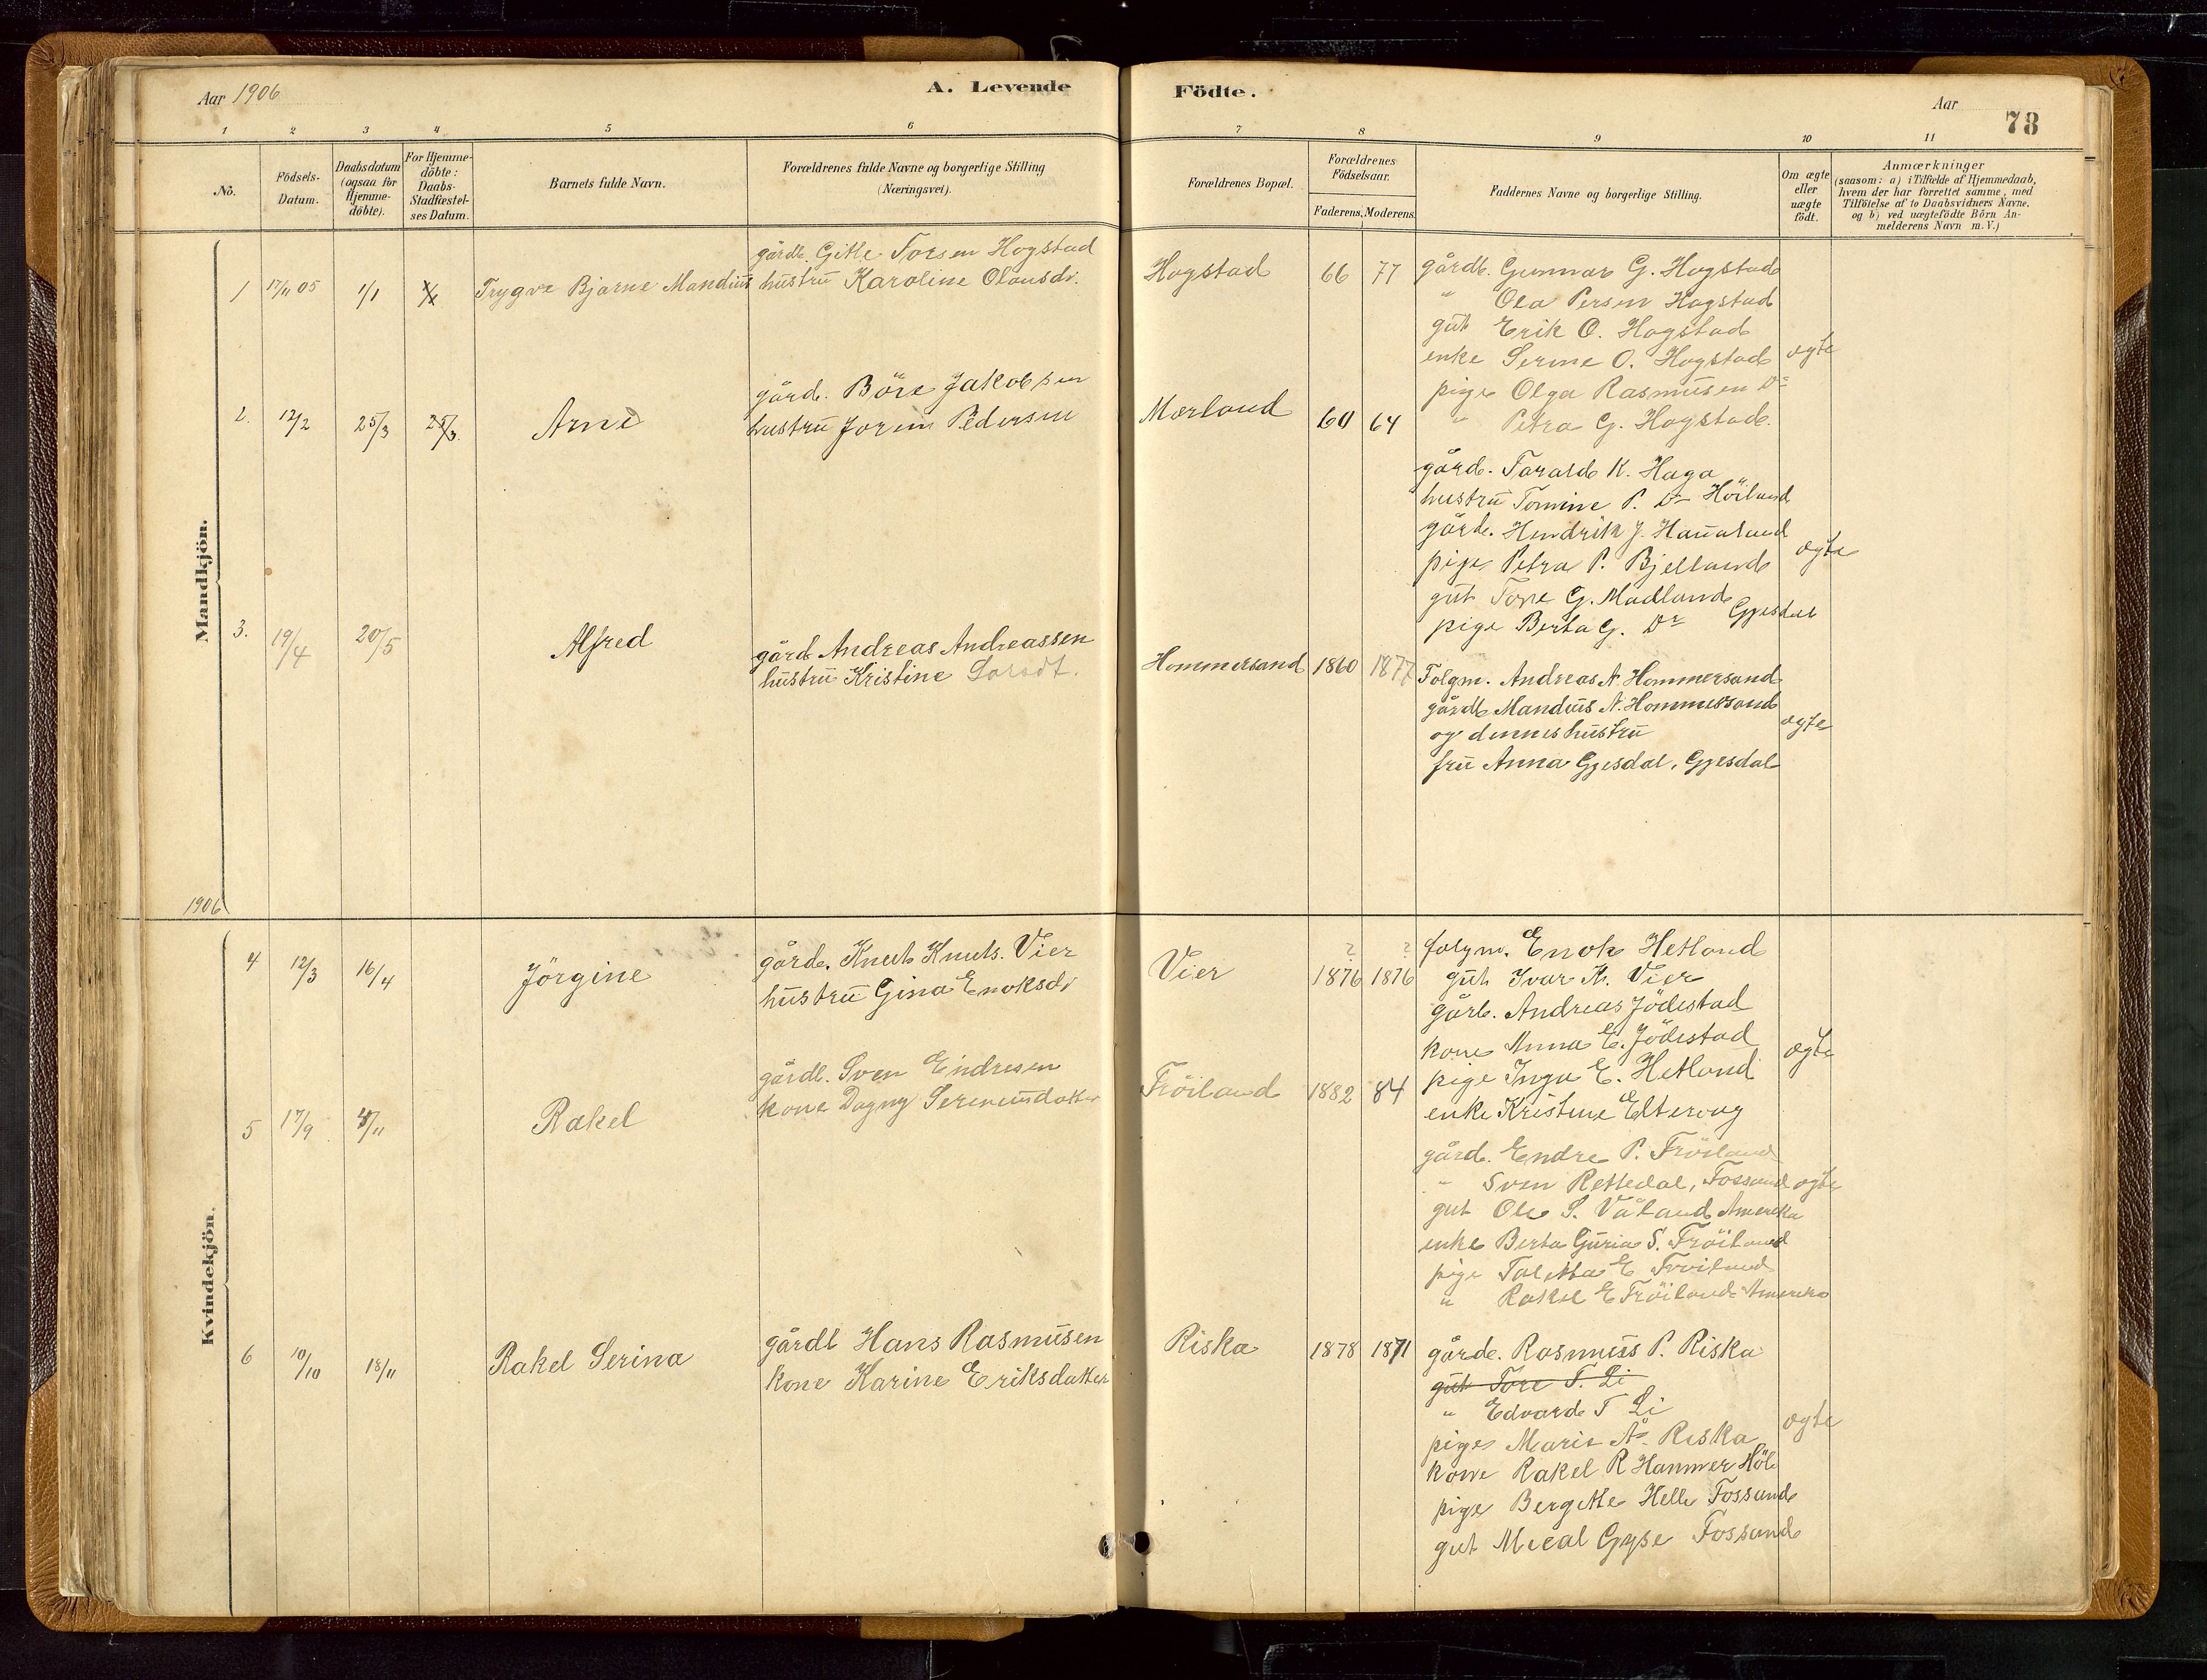 Aar 1906
A. Levende Födte.
Aar
78
1 2 3 4 5 6 7 8 9 10 11
No.
Födsels-Datum.
Daabsdatum (ogsaa for Hjemme-döbte).
For Hjemme-döbte: Daabs-Stadfæstel-ses Datum.
Barnets fulde Navn.
Forældrenes fulde Navne og borgerlige Stilling (Næringsvei).
Forældrenes Bopæl.
Forældrenes Födselsaar.
Faderens. Moderens.
Faddernes Navne og borgerlige Stilling.
Om ægte eller uægte födt.
Anmærkninger
(saasom: a) i Tilfælde af Hjemmedaab, hvem der har forrettet samme, med Tilföielse af to Daabsvidners Navne. og b) ved uægtefödte Börn An-melderens Navn m.V.)
Mandkjön.
1 17/11 05 1/1 Trygve Bjarne Mandius
gårdb. Gitle Torsen Hogstad
hustru Karoline Olausdr.
Hogstad 66 77
gårdb. Gunnar G. Hogstad
" Ola Persen Hogstad
gut Erik O. Hogstad
enke Serine O. Hogstad ægte
pige Olga Rasmusen Do
" Petra G. Hogstad.
2. 12/2 25/3 25/3. Arne
gårdb. Böre Jakobsen
hustru Jorun Pedersen
Mærland 60 64
gårdb. Tarald K. Haga
hustru Tomine P. Do Höiland
gårdb. Hendrik J. Hauatand
pige Petra P. Bjelland ægte
gut Tore G. Madland
pige Berta G. Do Gjesdal
3. 19/4 20/5 Alfred
gårdb Andreas Andreassen
hustru Kristine Larsdt.
Hommersand 1860 1877
Folgm. Andreas A. Hommersand
gårdb Mandius N. Hommersand
og dennes hustru ægte
fru Anna Gjesdal, Gjesdal
1906
Kvindekjön.
4 12/3 16/4 Jörgine
gårdb. Knut Knuts. Vier
hustru Gina Enoksdr
Vier ? 1876 ? 1876
folgm. Enok Hetland
gut Ivar K. Vier
gårb. Andreas Jödestad
kone Anna E. Jödestad ægte
pige Inga E. Hetland
enke Kristine Eltervag
5 17/9 4/11 Rakel
gårdb. Sven Endresen
kone Dagny Sereniusdatter
Fröiland 1882 84
gårdb. Endre P. Fröiland
" Sven Rettedal, Fossand ægte
gut Ole S. Våland Amerika
enke Berta Guria S. Fröiland
pige Taletta E Fröiland
" Rakel E Fröiland Amerika
6 10/10 18/11 Rakel Serina
gårdb Hans Rasmusen
kone Karine Eriksdatter
Riska 1878 1871
gårdb. Rasmus P. Riska
gut Tore T. Li
" Edvard T Li
pige Marie A. Riska ægte
kone Rakel R Hammer Höle
pige Bergitte Helle Fossand
gut Mical Gyse Fossand